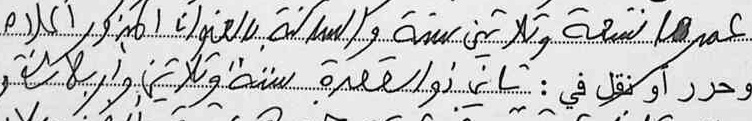 عمرها تسعة وثلاثين سنة والساكنة بالعنوان المذكور أعلاه
وحرر أو نقل في : ثاني ذو القعدة سنة وثلاثين وأربعمائة و